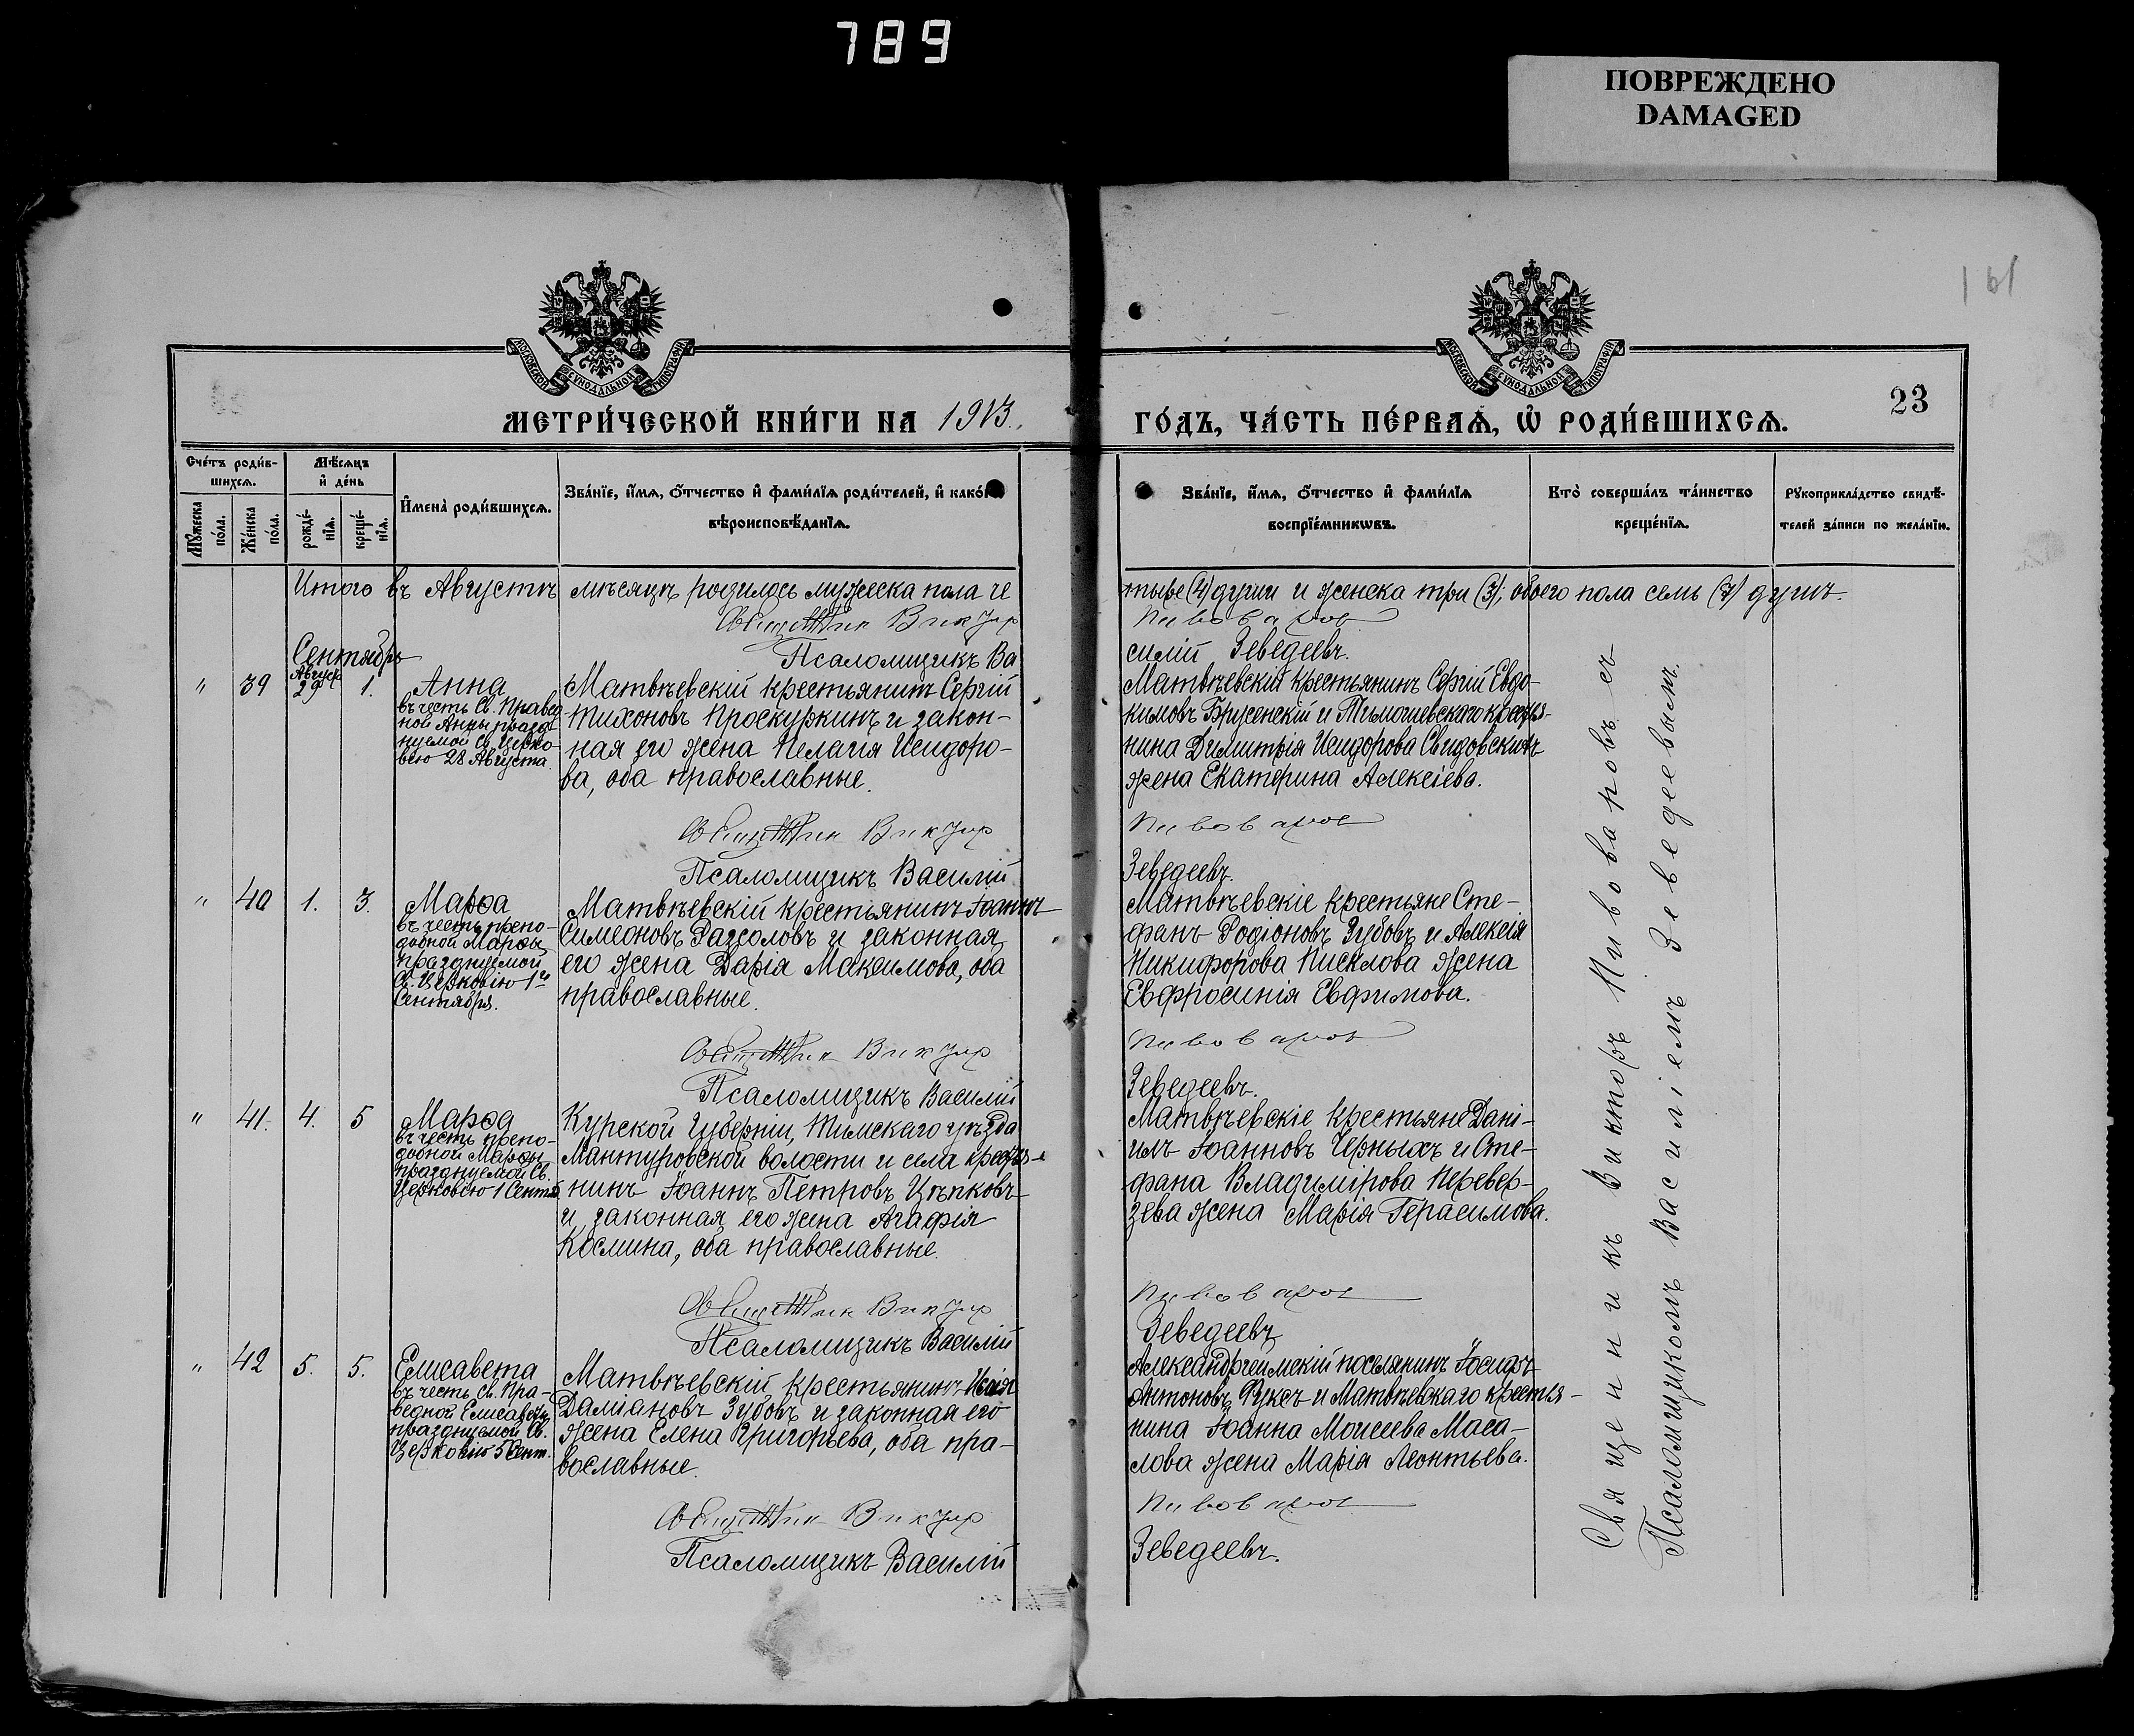 789
ПОВРЕЖДЕНО
DAMAGED
161
МОСКОВСКОЙ СѴНОДАЛЬНОЙ ТИПОГРАФІИ
МОСКОВСКОЙ СѴНОДАЛЬНОЙ ТИПОГРАФІИ
МЕТРИ́ЧЕСКОЙ КНИ́ГИ НА 1913.
ГО́ДЪ, ЧА́СТЬ ПЕ́РВАѦ, Ѽ РОДИ́ВШИХСѦ.
23
Сче́тъ роди́в-
шихсѧ.
Мꙋ́жеска
по́ла.
Же́нска
по́ла.
Мѣ́сѧцъ
и҆ де́нь
рожде́-
нїѧ.
креще́-
нїѧ.
И҆мена̀ роди́вшихсѧ.
Зва́нїе, и҆́мѧ, ѻ҆́тчество и҆ фами́лїѧ роди́телей, и҆ како́гѡ
вѣроисповѣ́данїѧ.
Зва́нїе, и҆́мѧ, ѻ҆́тчество и҆ фами́лїѧ
воспрїе́мникѡвъ.
Кто̀ соверша́лъ та́инство
креще́нїѧ.
Рꙋкоприкла́дство свидѣ́-
телей за́писи по жела́нїю.
Итого въ Августѣ мѣсяцѣ родилось мужеска пола че
тыре (4) души и женска три (3); обоего пола семь (7) душъ.
Священник Виктор
Пивоваров
Псаломщикъ Ва
силій Зеведеевъ.
Сентябрь
" 39
Август
29 1.
Анна
въ честь Св. Правед
ной Анны праздн
нуемой Св. Церко-
вью 28 Августа.
Матвѣевскій крестьянинъ Сергій
Тихоновъ Проскуркинъ и закон-
ная его жена Пелагія Исидоро-
ва, оба православные.
Матвѣевскій крестьянинъ Сергій Евдо-
кимовъ Брусенскій и Тимошевскаго крестья-
нина Димитрія Исидорова Свидовскихъ
жена Екатерина Алексіева.
Священник Виктор
Пивоваров
Псаломщикъ Василій
Зеведеевъ.
" 40 1. 3.
Марѳа
въ честь препо-
добной Марѳы
празднуемой
Св. Церковію 1го
Сентября.
Матвѣевскій крестьянинъ Іоаннъ
Симеоновъ Разсоловъ и законная
его жена Дарія Максимова, оба
православные.
Матвѣевскіе крестьяне Сте-
фанъ Родіоновъ Зубовъ и Алексія
Никифорова Писклова жена
Евфросинія Евфимова.
Священник Виктор
Пивоваров
Псаломщикъ Василій
Зеведеевъ.
" 41. 4. 5
Марѳа
въ честь препо-
добной Марѳы
празднуемой Св.
Церковію 1 Сентя
Курской Губерніи, Тимскаго уѣзда
Мантуровской волости и села крестья-
нинъ Іоаннъ Петровъ Цѣпковъ
и законная его жена Агафія
Космина, оба православные.
Матвѣевскіе крестьяне Дані-
илъ Іоанновъ Черныхъ и Сте-
фана Владимірова Перевер-
зева жена Марія Герасимова.
Священник Виктор
Пивоваров
Псаломщикъ Василій
Зеведеевъ
" 42 5. 5.
Елисавета
въ честь св. Пра-
ведной Елисаветы
празднуемой Св.
Церковію 5 Сент.
Матвѣевскій крестьянинъ Исаія
Даміановъ Зубовъ и законная его
жена Елена Григорьева, оба пра-
вославные.
Александргеймскій поселянинъ Іосифъ
Антоновъ Фуксъ и Матвѣевскаго крестья-
нина Іоанна Моисеева Маса-
лова жена Марія Леонтьева.
Священник Виктор
Пивоваров
Псаломщикъ Василій
Зеведеевъ.
Священникъ Викторъ Пивоваровъ съ
Псаломщикомъ Василіемъ Зеведеевымъ.